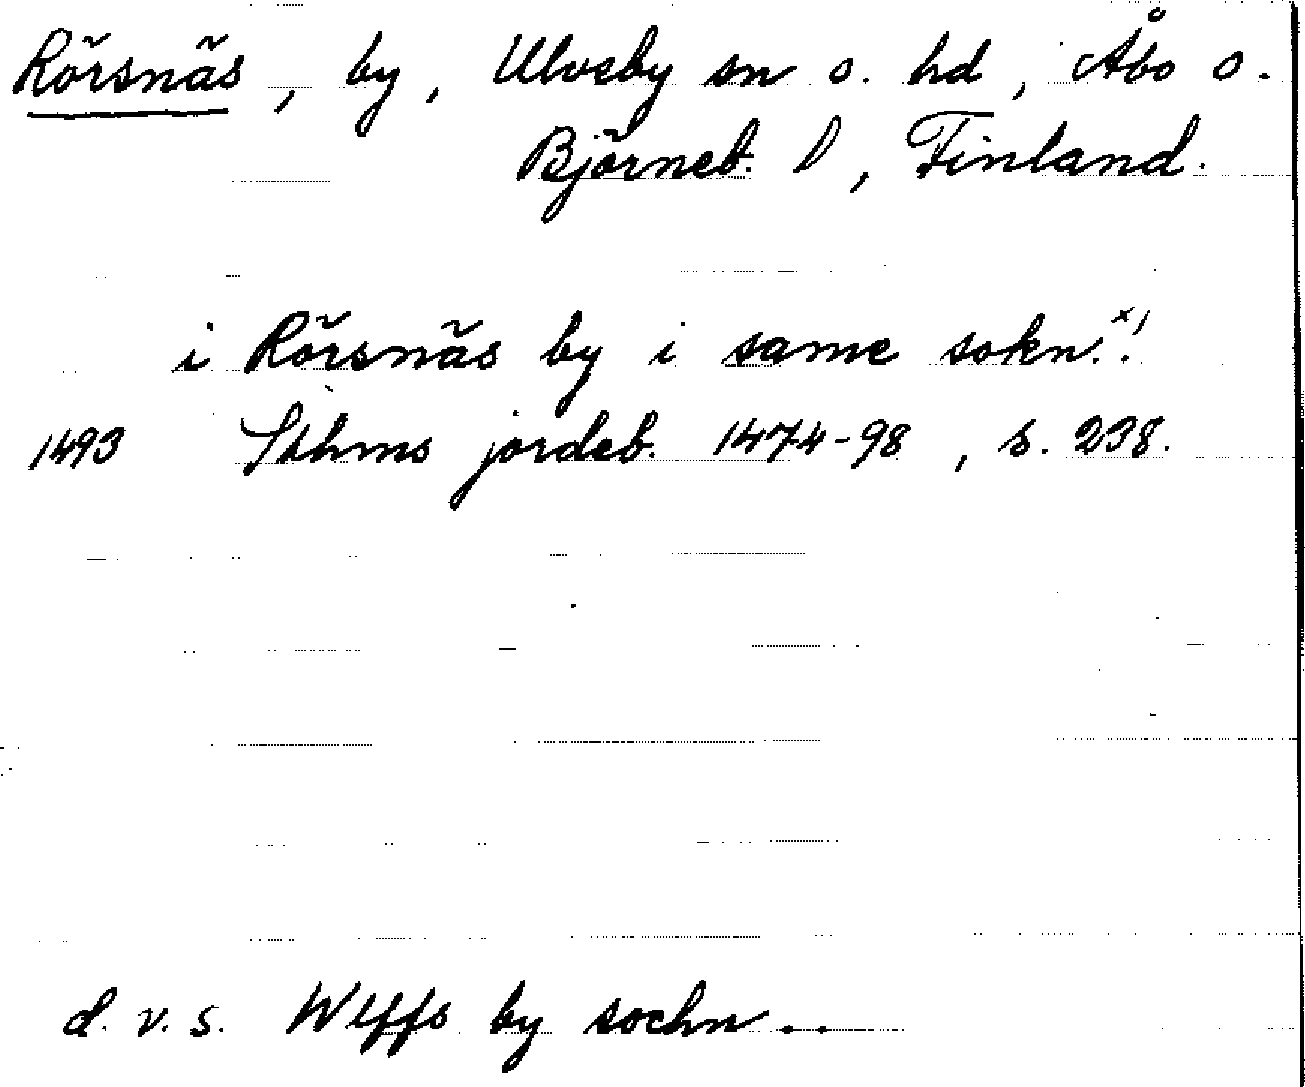 Rörsnäs, by, Ulvsby sn o. hd, Åbo o.
Björneb. l, Finland.
i Rörsnäs by i same sokn. x)
1493 Sthms jordeb. 1474-98, s. 238.
d. v. s. Wlffs by sochn..